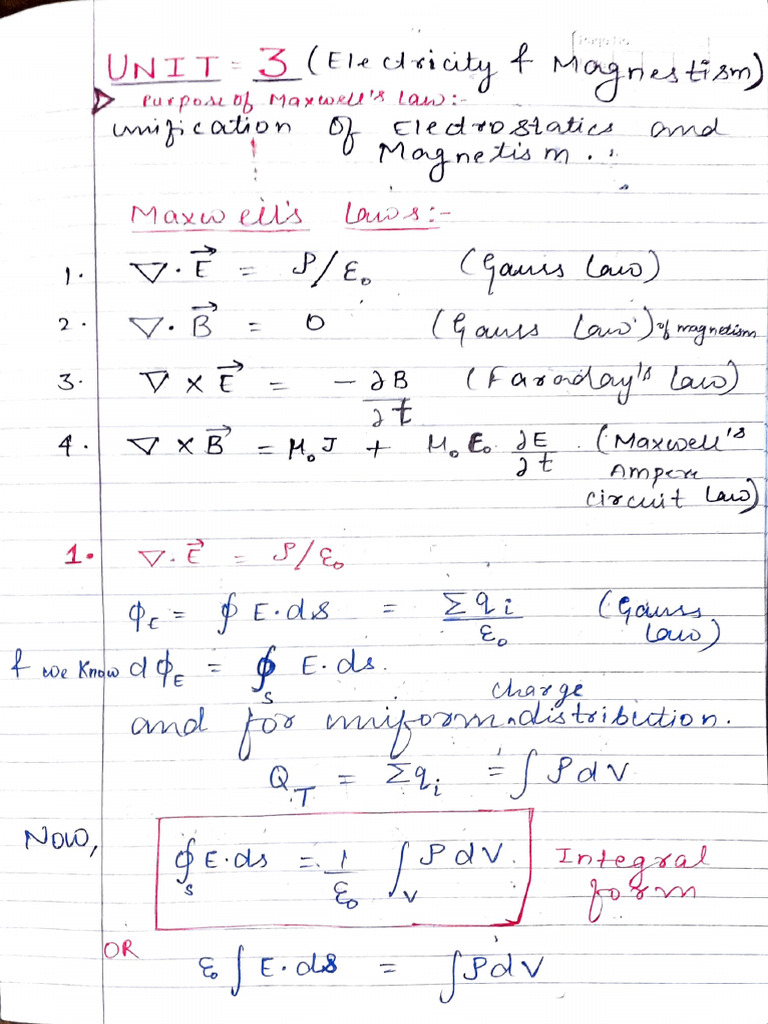 UNIT = 3 (Electricity & Magnestism)
Purpose of Maxwell's Law:-
unification of Electrostatics and
Magnetism.
Maxwell's Laws:-
1. ∇·E⃗ = ρ/ε₀ (Gauss Law)
2. ∇·B⃗ = 0 (Gauss Law) of magnetism
3. ∇×E⃗ = -∂B/∂t (Faraday's Law)
4. ∇×B⃗ = μ₀J + μ₀ε₀ ∂E/∂t (Maxwell's
Ampere
circuit Law)
1. ∇·E⃗ = ρ/ε₀
ϕ_E = ∮ E·ds = Σqi/ε₀ (Gauss
Law)
& we know dϕ_E = ∮_S E·ds.
and for uniform charge distribution.
Q_T = Σqi = ∫ρdV
Now, ∮_S E·ds = 1/ε₀ ∫_V ρdV. Integral
form
OR
ε₀∫E·ds = ∫ρdV